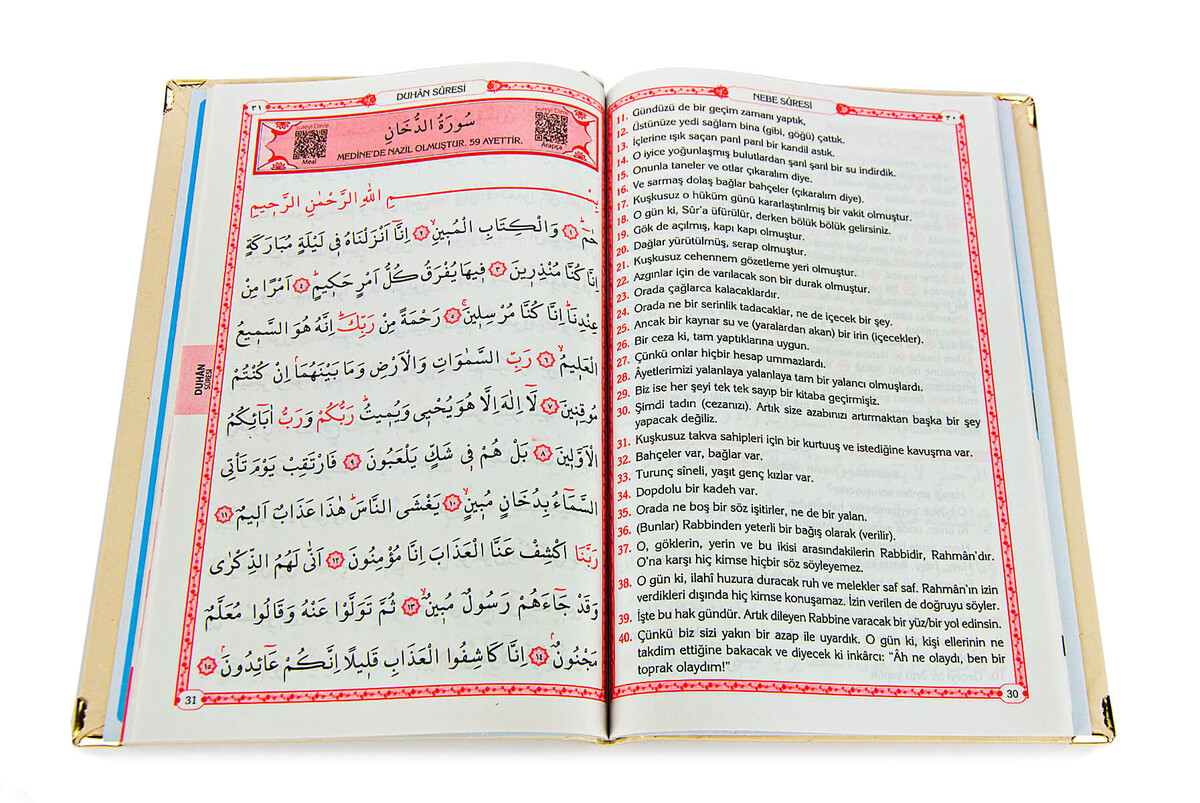 NEBE SÛRESİ
٣٠
11. Gündüzü de bir geçim zamanı yaptık,
12. Üstünüze yedi sağlam bina (gibi, göğü) çattık.
13. İçlerine ışık saçan parıl parıl bir kandil astık.
14. O iyice yoğunlaşmış bulutlardan şarıl şarıl bir su indirdik.
15. Onunla taneler ve otlar çıkaralım diye.
16. Ve sarmaş dolaş bağlar bahçeler (çıkaralım diye).
17. Kuşkusuz o hüküm günü kararlaştırılmış bir vakit olmuştur.
18. O gün ki, Sûr'a üfürülür, derken bölük bölük gelirsiniz.
19. Gök de açılmış, kapı kapı olmuştur.
20. Dağlar yürütülmüş, serap olmuştur.
21. Kuşkusuz cehennem gözetleme yeri olmuştur.
22. Azgınlar için de varılacak son bir durak olmuştur.
23. Orada çağlarca kalacaklardır.
24. Orada ne bir serinlik tadacaklar, ne de içecek bir şey.
25. Ancak bir kaynar su ve (yaralardan akan) bir irin (içecekler).
26. Bir ceza ki, tam yaptıklarına uygun.
27. Çünkü onlar hiçbir hesap ummazlardı.
28. Âyetlerimizi yalanlaya yalanlaya tam bir yalancı olmuşlardı.
29. Biz ise her şeyi tek tek sayıp bir kitaba geçirmişiz.
30. Şimdi tadın (cezanızı). Artık size azabınızı artırmaktan başka bir şey
yapacak değiliz.
31. Kuşkusuz takva sahipleri için bir kurtuuş ve istediğine kavuşma var.
32. Bahçeler var, bağlar var.
33. Turunç sîneli, yaşıt genç kızlar var.
34. Dopdolu bir kadeh var.
35. Orada ne boş bir söz işitirler, ne de bir yalan.
36. (Bunlar) Rabbinden yeterli bir bağış olarak (verilir).
37. O, göklerin, yerin ve bu ikisi arasındakilerin Rabbidir, Rahmân'dır.
O'na karşı hiç kimse hiçbir söz söyleyemez.
38. O gün ki, ilahî huzura duracak ruh ve melekler saf saf. Rahmân'ın izin
verdikleri dışında hiç kimse konuşamaz. İzin verilen de doğruyu söyler.
39. İşte bu hak gündür. Artık dileyen Rabbine varacak bir yüz/bir yol edinsin.
40. Çünkü biz sizi yakın bir azap ile uyardık. O gün ki, kişi ellerinin ne
takdim ettiğine bakacak ve diyecek ki inkârcı: “Âh ne olaydı, ben bir
toprak olaydım!”
30
٣١
DUHÂN SÛRESİ
Sûreyi Dinle
Meal
سُورَةُ الدُّخَانِ
Sûreyi Dinle
Arapça
MEDİNE'DE NAZİL OLMUŞTUR. 59 AYETTİR.
بِسْمِ اللّٰهِ الرَّحْمٰنِ الرَّحٖيمِ
حٰمٓ ١ وَالْكِتَابِ الْمُبٖينِ ٢ اِنَّٓا اَنْزَلْنَاهُ فٖي لَيْلَةٍ مُبَارَكَةٍ
اِنَّا كُنَّا مُنْذِرٖينَ ٣ فٖيهَا يُفْرَقُ كُلُّ اَمْرٍ حَكٖيمٍ ٤ اَمْرًا مِنْ
عِنْدِنَا اِنَّا كُنَّا مُرْسِلٖينَ ٥ رَحْمَةً مِنْ رَبِّكَ اِنَّهُ هُوَ السَّمٖيعُ
الْعَلٖيمُ ٦ رَبِّ السَّمٰوَاتِ وَالْاَرْضِ وَمَا بَيْنَهُمَا اِنْ كُنْتُمْ
مُوقِنٖينَ ٧ لَٓا اِلٰهَ اِلَّا هُوَ يُحْيٖي وَيُمٖيتُ رَبُّكُمْ وَرَبُّ اٰبَٓائِكُمُ
الْاَوَّلٖينَ ٨ بَلْ هُمْ فٖي شَكٍّ يَلْعَبُونَ ٩ فَارْتَقِبْ يَوْمَ تَأْتِي
السَّمَٓاءُ بِدُخَانٍ مُبٖينٍ ١٠ يَغْشَى النَّاسَ هٰذَا عَذَابٌ اَلٖيمٌ ١١
رَبَّنَا اكْشِفْ عَنَّا الْعَذَابَ اِنَّا مُؤْمِنُونَ ١٢ اَنّٰى لَهُمُ الذِّكْرٰى
وَقَدْ جَٓاءَهُمْ رَسُولٌ مُبٖينٌ ١٣ ثُمَّ تَوَلَّوْا عَنْهُ وَقَالُوا مُعَلَّمٌ
مَجْنُونٌ ١٤ اِنَّا كَاشِفُوا الْعَذَابِ قَلٖيلًا اِنَّكُمْ عَٓائِدُونَ ١٥
DUHÂN
SÛRESİ
31